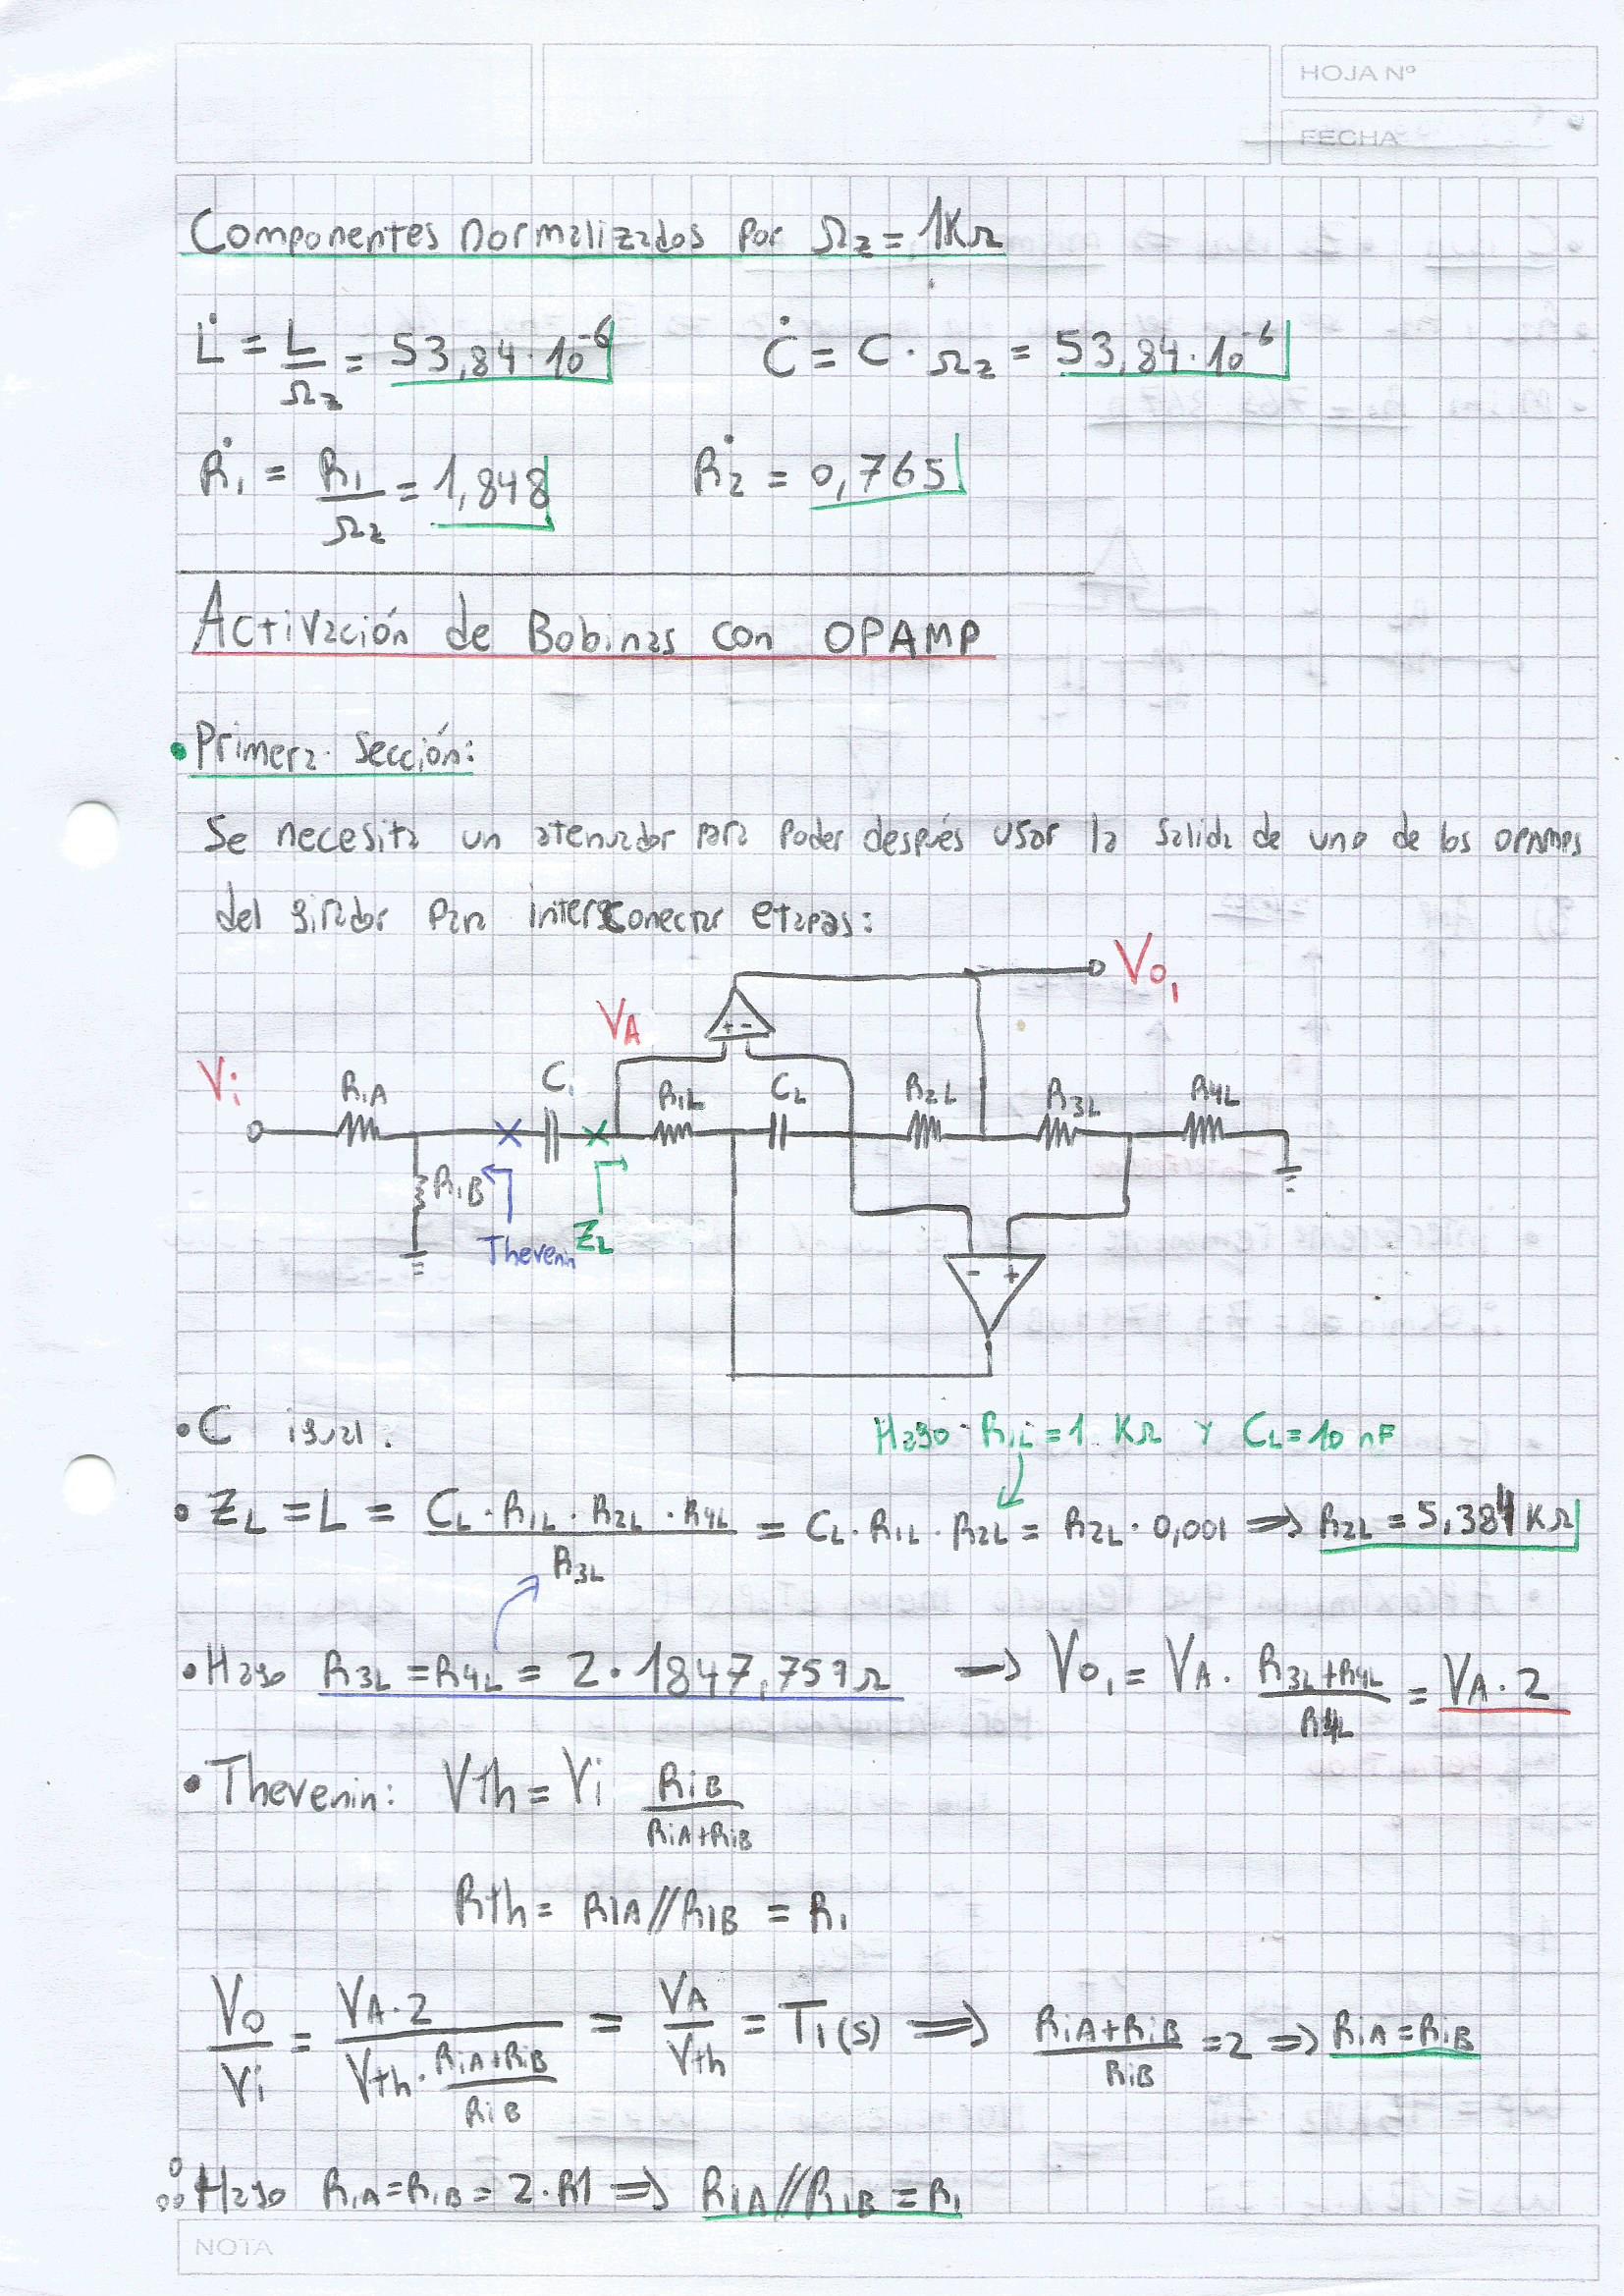 HOJA Nº
FECHA
Componentes normalizados por Ω_z = 1KΩ
L̇ = L/Ω_z = 53,84·10^-6    Ċ = C·Ω_z = 53,84·10^-6
Ṙ1 = R1/Ω_z = 1,848    Ṙ2 = 0,765
Activación de Bobinas con OPAMP
• Primera Sección:
Se necesita un atenuador para poder después usar la salida de uno de los OPAMPS
del girador para interconectar etapas:
Vo1
VA
+ -
Vi R1A C1 R1L CL R2L R3L R4L
R1B
Thevenin ZL
- +
• C igual.
Hago R1L = 1 KΩ y CL = 10 nF
• ZL = L = CL·R1L·R2L·R4L / R3L = CL·R1L·R2L = R2L·0,001 ⇒ R2L = 5,384 KΩ
• Hago R3L = R4L = 2·1847,759Ω → Vo1 = VA·(R3L+R4L)/R4L = VA·2
• Thevenin: Vth = Vi R1B/(R1A+R1B)
Rth = R1A//R1B = R1
Vo/Vi = VA·2 / (Vth·(R1A+R1B)/R1B) = VA/Vth = T1(s) ⇒ (R1A+R1B)/R1B = 2 ⇒ R1A = R1B
∴ Hago R1A = R1B = 2·R1 ⇒ R1A//R1B = R1
NOTA